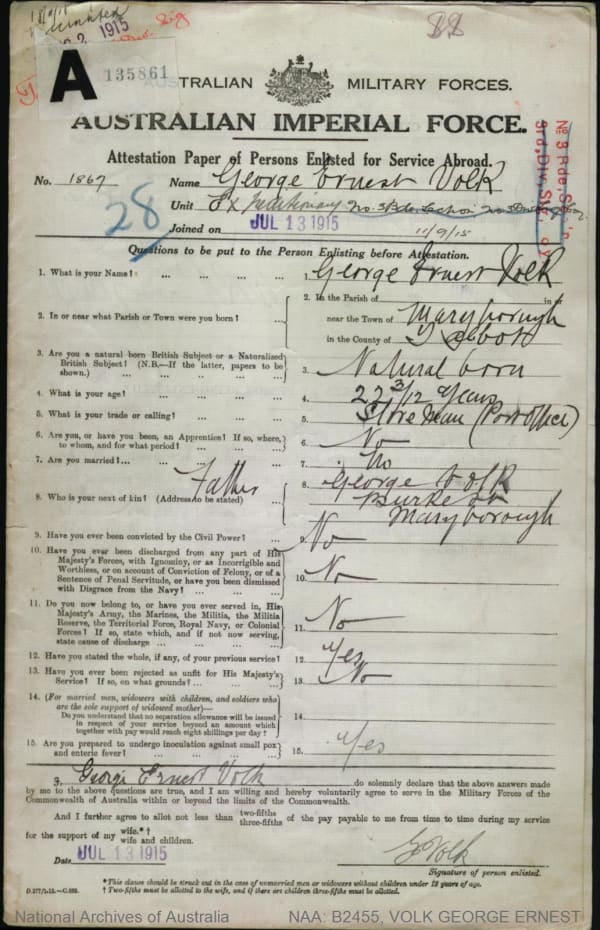 1915
Sig
A
135861
AUSTRALIAN MILITARY FORCES.
AUSTRALIAN IMPERIAL FORCE.
Attestation Paper of Persons Enlisted for Service Abroad.
No. 1867 Name George Ernest Volk
Unit
28
Joined on JUL 13 1915 11/9/15
Questions to be put to the Person Enlisting before Attestation.
1. What is your Name? ... ... ... ... 1. George Ernest Volk
2. In or near what Parish or Town were you born? ... 2. In the Parish of in or
near the Town of Maryborough
in the County of Talbot
3. Are you a natural born British Subject or a Naturalized
British Subject? (N.B.—If the latter, papers to be
shown.) ... ... ... ... 3. Natural born
4. What is your age? ... ... ... ... 4. 22 3/12 Years
5. What is your trade or calling? ... ... ... 5. Store Man (Post Office)
6. Are you, or have you been, an Apprentice? If so, where,
to whom, and for what period? ... ... ... 6. No
7. Are you married? ... ... ... ... 7. No
8. Who is your next of kin? (Address to be stated) Father 8. George Volk
Burke St
Maryborough
9. Have you ever been convicted by the Civil Power? ... 9. No
10. Have you ever been discharged from any part of His
Majesty's Forces, with Ignominy, or as Incorrigible and
Worthless, or on account of Conviction of Felony, or of a
Sentence of Penal Servitude, or have you been dismissed
with Disgrace from the Navy? ... ... ... 10. No
11. Do you now belong to, or have you ever served in, His
Majesty's Army, the Marines, the Militia, the Militia
Reserve, the Territorial Force, Royal Navy, or Colonial
Forces? If so, state which, and if not now serving,
state cause of discharge ... ... ... 11. No
12. Have you stated the whole, if any, of your previous service? 12. Yes
13. Have you ever been rejected as unfit for His Majesty's
Service? If so, on what grounds? ... ... 13. No
14. (For married men, widowers with children, and soldiers who
are the sole support of widowed mother)—
Do you understand that no separation allowance will be issued
in respect of your service beyond an amount which
together with pay would reach eight shillings per day? 14.
15. Are you prepared to undergo inoculation against small pox
and enteric fever? ... ... ... ... 15. Yes
I, George Ernest Volk do solemnly declare that the above answers made
by me to the above questions are true, and I am willing and hereby voluntarily agree to serve in the Military Forces of the
Commonwealth of Australia within or beyond the limits of the Commonwealth.
And I further agree to allot not less than two-fifths three-fifths of the pay payable to me from time to time during my service
for the support of my wife.*† wife and children.
Date JUL 13 1915 G Volk
Signature of person enlisted.
*This clause should be struck out in the case of unmarried men or widowers without children under 18 years of age.
† Two-fifths must be allotted to the wife, and if there are children three-fifths must be allotted.
National Archives of Australia NAA: B2455, VOLK GEORGE ERNEST